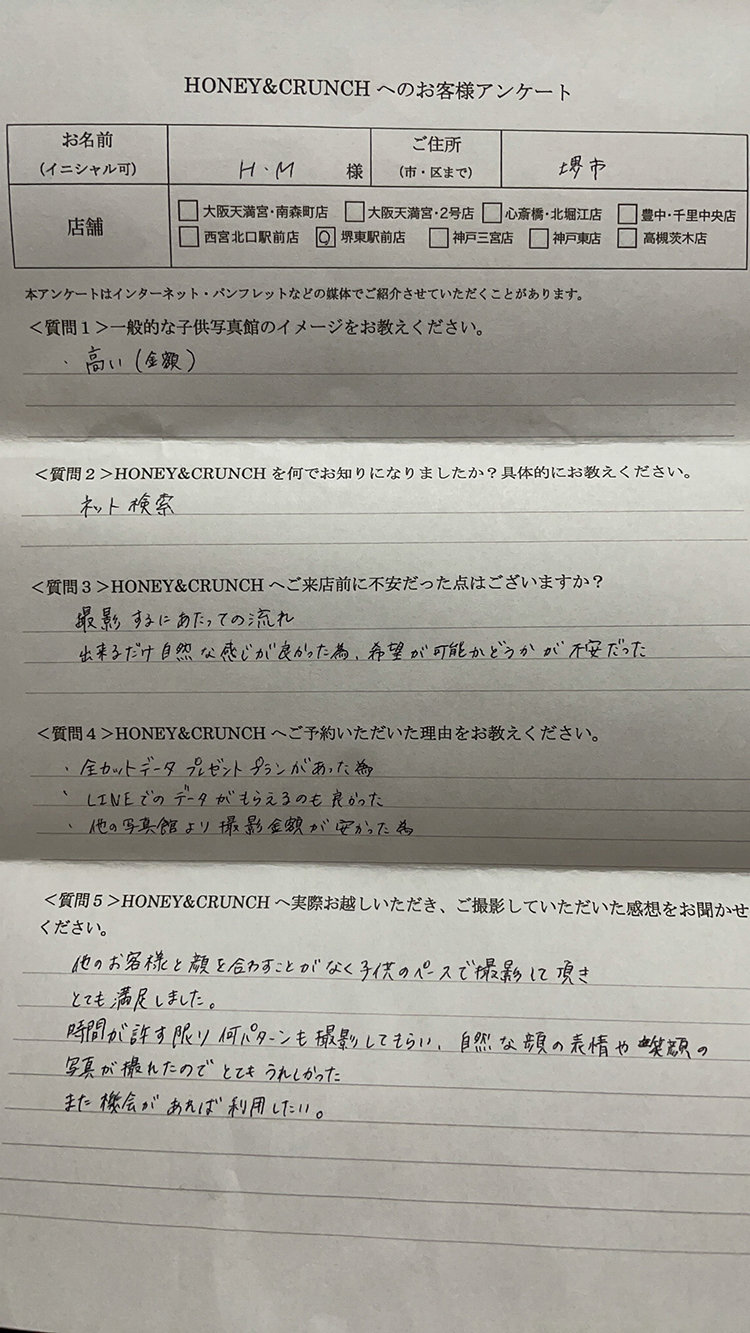 HONEY&CRUNCH へのお客様アンケート
お名前
(イニシャル可)
H・M 様
ご住所
(市・区まで)
堺市
店舗
□大阪天満宮・南森町店 □大阪天満宮・2号店 □心斎橋・北堀江店 □豊中・千里中央店
□西宮北口駅前店 ☑堺東駅前店 □神戸三宮店 □神戸東店 □高槻茨木店
本アンケートはインターネット・パンフレットなどの媒体でご紹介させていただくことがあります。
<質問1>一般的な子供写真館のイメージをお教えください。
・高い(金額)
<質問2>HONEY&CRUNCH を何でお知りになりましたか?具体的にお教えください。
ネット検索
<質問3>HONEY&CRUNCH へご来店前に不安だった点はございますか?
撮影するにあたっての流れ
出来るだけ自然な感じが良かった為、希望が可能かどうかが不安だった
<質問4>HONEY&CRUNCH へご予約いただいた理由をお教えください。
・全カットデータプレゼントプランがあった為
・LINEでのデータがもらえるのも良かった
・他の写真館より撮影金額が安かった為
<質問5>HONEY&CRUNCH へ実際お越しいただき、ご撮影していただいた感想をお聞かせ
ください。
他のお客様と顔を合わすことがなく子供のペースで撮影して頂き
とても満足しました。
時間が許す限り何パターンも撮影してもらい、自然な顔の表情や笑顔の
写真が撮れたのでとてもうれしかった
また機会があれば利用したい。